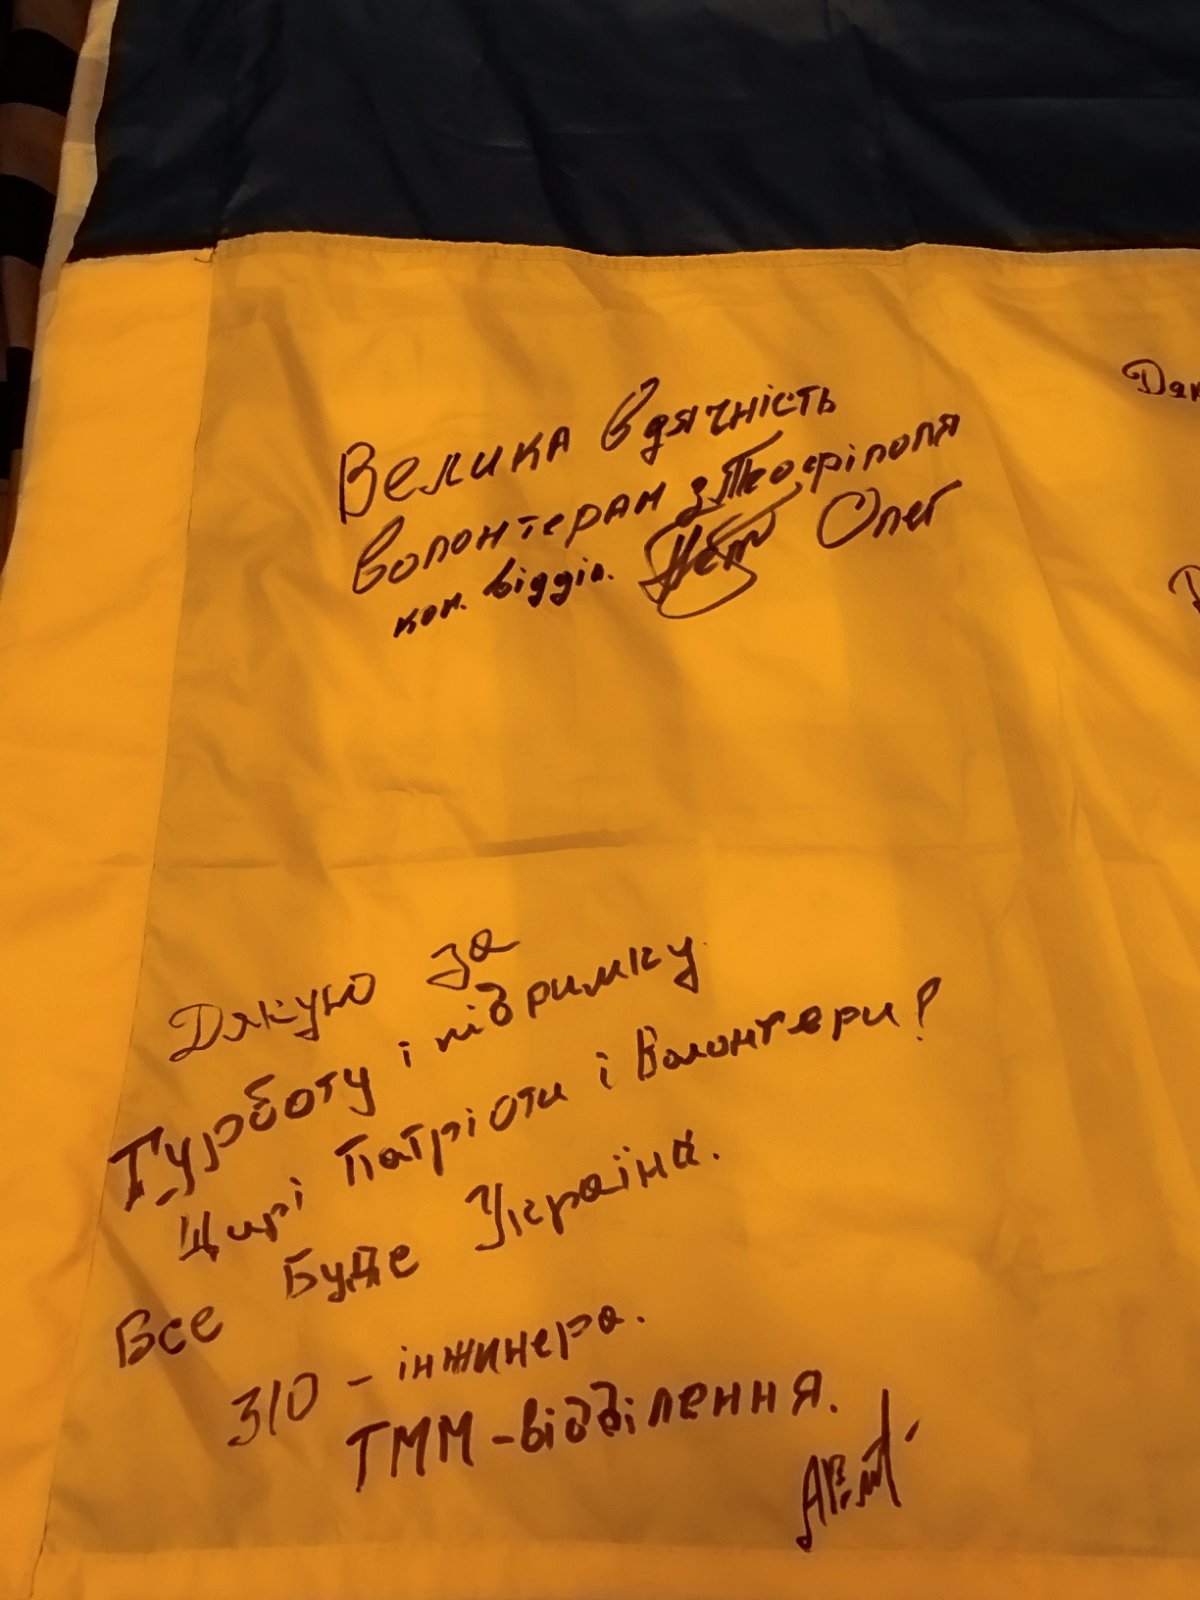 Велика вдячність
волонтерам з Теофіполя
ком. відділ. Олег
Дяк
Дякую за
Турботу і підримку
Щирі Патріоти і Волонтери!
Все Буде Україна.
310 - інжинера.
ТММ - відділення.